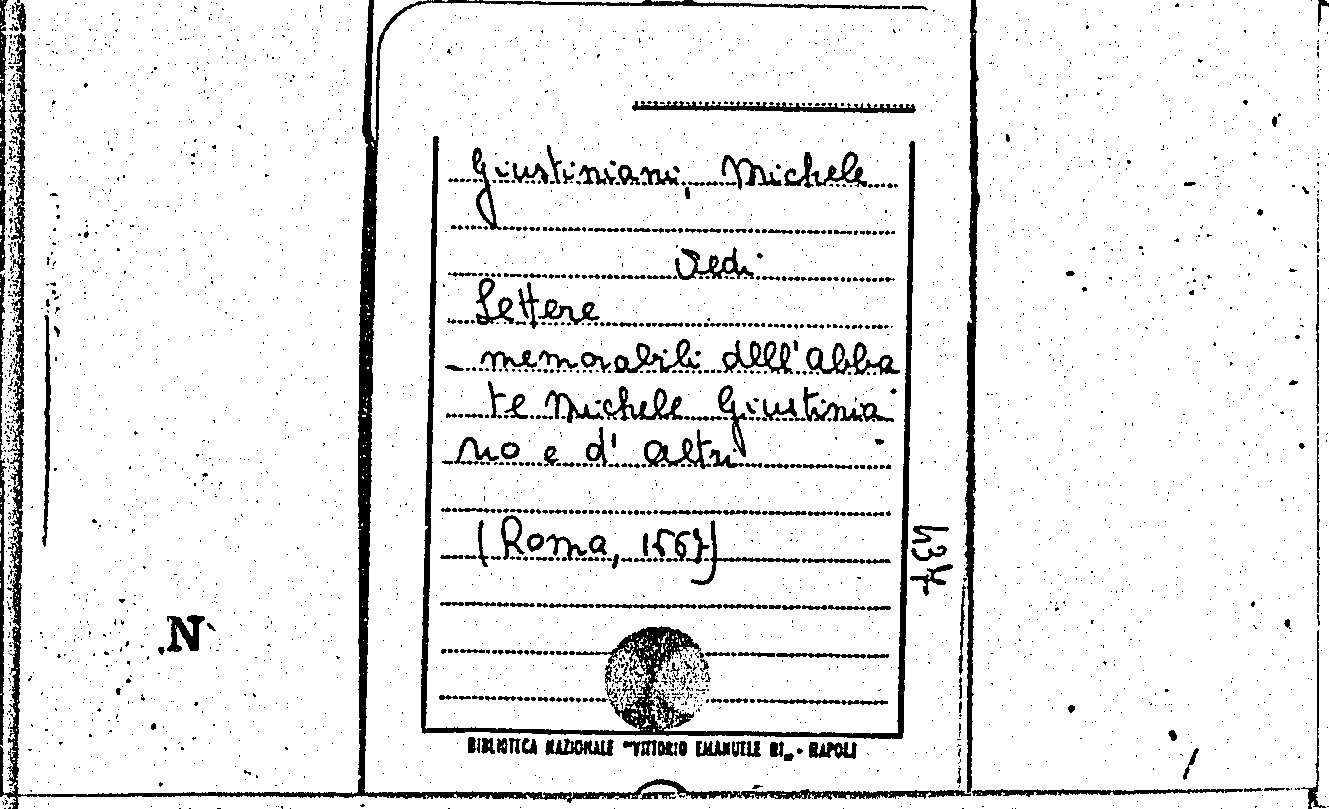 Giustiniani, Michele
Vedi
Lettere
memorabili dell'abba
te Michele Giustinia
no e d'altri
(Roma, 1667)
437
.N
BIBLIOTECA NAZIONALE "VITTORIO EMANUELE III„ - NAPOLI